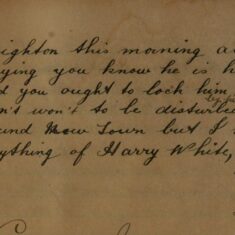 ighton this morning a
ying you know he is h
d you ought to lock him
n't won't to be disturbe
und New Town but I
ything of Harry White,